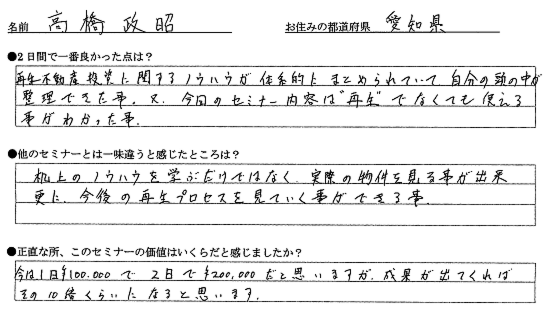 名前 高橋政昭 お住みの都道府県 愛知県
●2日間で一番良かった点は？
再生不動産投資に関するノウハウが体系的にまとめられていて、自分の頭の中が
整理できた事。又、今回のセミナー内容は"再生"でなくても使える
事がわかった事。
●他のセミナーとは一味違うと感じたところは？
机上のノウハウを学ぶだけではなく、実際の物件を見る事が出来
更に、今後の再生プロセスを見ていく事ができる事。
●正直な所、このセミナーの価値はいくらだと感じましたか？
今は1日¥100.000で2日で¥200,000だと思いますが、成果が出てくれば
その10倍くらいになると思います。